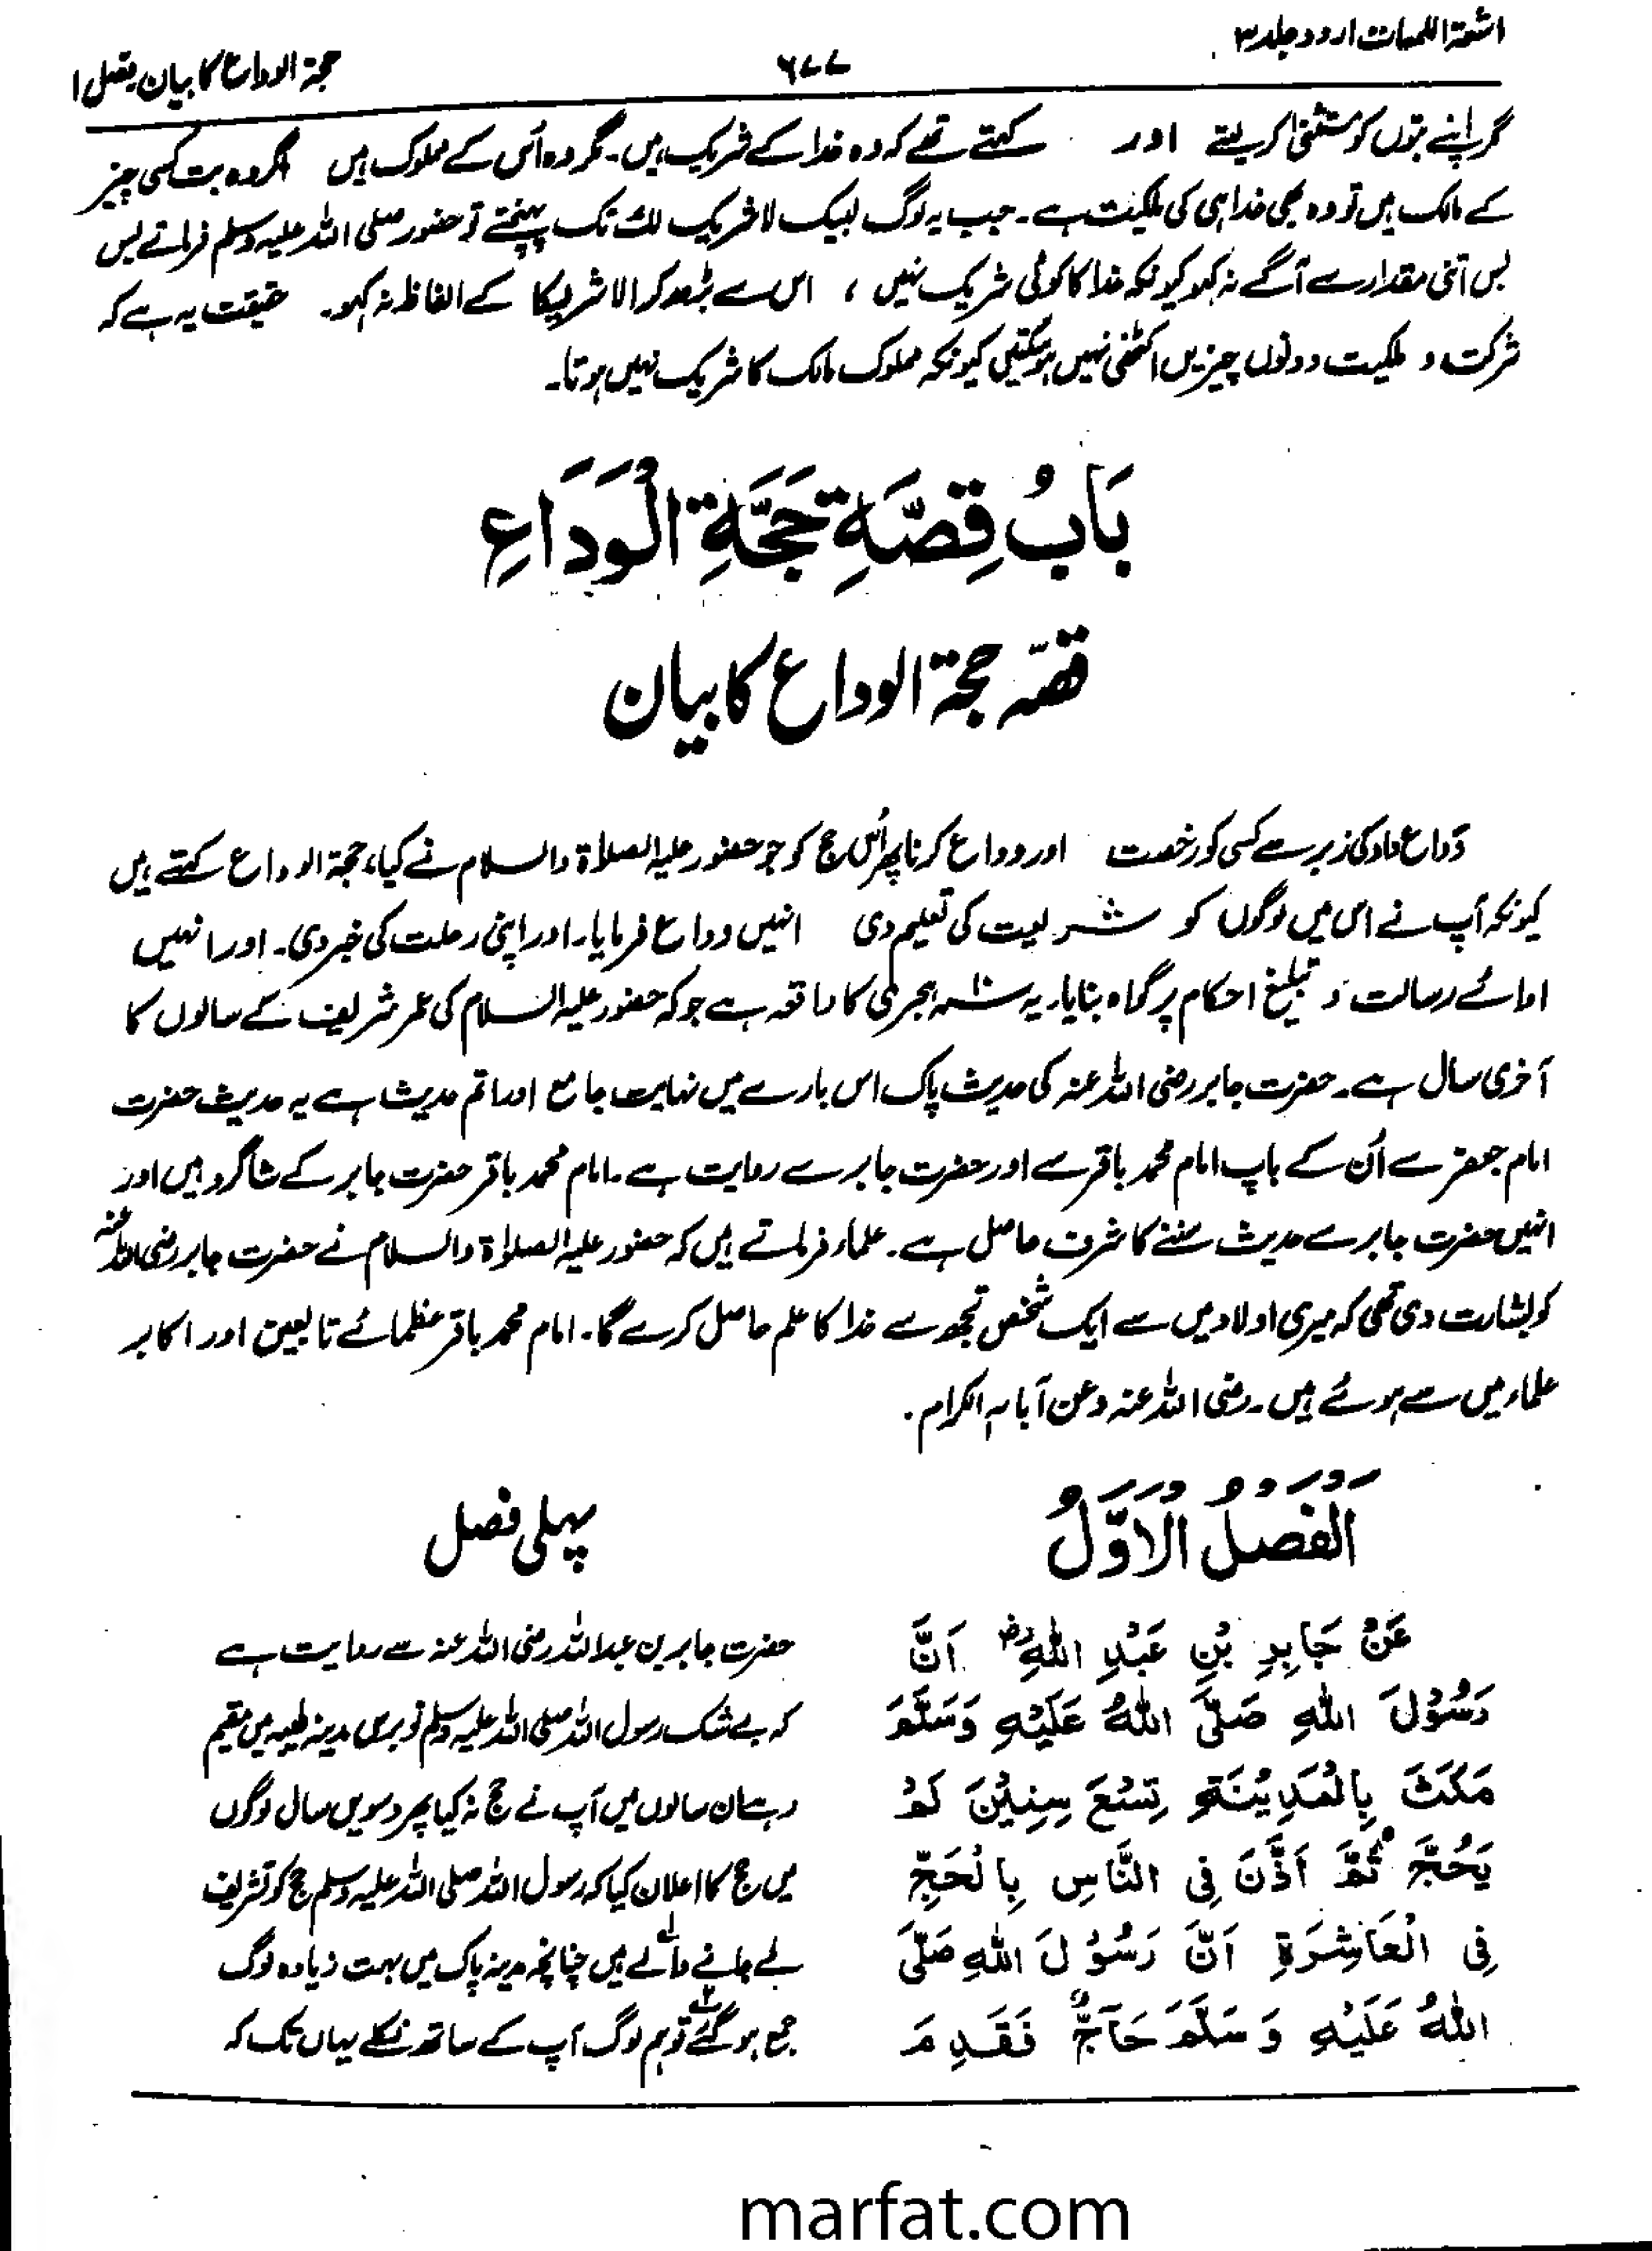 اشعۃ اللمعات اردو جلد ۳
۶۷۷
حجۃ الوداع کا بیان فصل ۱
گر اپنے بتوں کو مستثنیٰ کر لیتے اور کہتے تھے کہ وہ خدا کے شریک ہیں۔ مگر وہ اُس کے مملوک ہیں اگر وہ بت کسی چیز
کے مالک ہیں تو وہ بھی خدا ہی کی ملکیت ہے۔ جب یہ لوگ لبیک لا شریک لک تک پہنچتے تو حضور صلی اللہ علیہ وسلم فرماتے بس
بس اتنی مقدار سے آگے نہ کہو کیونکہ خدا کا کوئی شریک نہیں ، اس سے بڑھ کر الا شریکا کے الفاظ نہ کہو۔ حقیقت یہ ہے کہ
شرکت و ملکیت دونوں چیزیں اکٹھی نہیں ہو سکتیں کیونکہ مملوک مالک کا شریک نہیں ہوتا۔
بَابُ قِصَّةِ حَجَّةِ الْوَدَاعِ
قصّہ حجۃ الوداع کا بیان
وَداع داد کی زبر سے کسی کو رخصت اور وداع کرنا پھر اُس حج کو جو حضور علیہ الصلاۃ والسلام نے کیا، حجۃ الوداع کہتے ہیں
کیونکہ آپ نے اس میں لوگوں کو شریعت کی تعلیم دی انہیں وداع فرمایا۔ اور اپنی رحلت کی خبر دی۔ اور انہیں
ادائے رسالت و تبلیغ احکام پر گواہ بنایا۔ یہ ۱۰ ہجری کا واقعہ ہے جو کہ حضور علیہ السلام کی عمر شریف کے سالوں کا
آخری سال ہے۔ حضرت جابر رضی اللہ عنہ کی حدیث پاک اس بارے میں نہایت جامع اور اتم حدیث ہے یہ حدیث حضرت
امام جعفر سے اُن کے باپ امام محمد باقر سے اور حضرت جابر سے روایت ہے۔ امام محمد باقر حضرت جابر کے شاگرد ہیں اور
انہیں حضرت جابر سے حدیث سننے کا شرف حاصل ہے۔ علماء فرماتے ہیں کہ حضور علیہ الصلاۃ والسلام نے حضرت جابر رضی اللہ عنہ
کو بشارت دی تھی کہ میری اولاد میں سے ایک شخص تجھ سے خدا کا علم حاصل کرے گا۔ امام محمد باقر عظمائے تابعین اور اکابر
علماء میں سے ہوئے ہیں۔ رضی اللہ عنہ وعن آبائہ الکرام۔
اَلْفَصْلُ الْاَوَّلُ
عَنْ جَابِرِ بْنِ عَبْدِ اللهِ رض اَنَّ
رَسُوْلَ اللهِ صَلَّى اللهُ عَلَيْهِ وَسَلَّمَ
مَكَثَ بِالْمَدِيْنَةِ تِسْعَ سِنِيْنَ لَمْ
يَحُجَّ ثُمَّ اَذَّنَ فِى النَّاسِ بِالْحَجِّ
فِى الْعَاشِرَةِ اَنَّ رَسُوْلَ اللهِ صَلَّى
اللهُ عَلَيْهِ وَسَلَّمَ حَآجٌّ فَقَدِمَ
پہلی فصل
حضرت جابر بن عبداللہ رضی اللہ عنہ سے روایت ہے
کہ بے شک رسول اللہ صلی اللہ علیہ وسلم نو برس مدینہ طیبہ میں مقیم
رہے ان سالوں میں آپ نے حج نہ کیا پھر دسویں سال لوگوں
میں حج کا اعلان کیا کہ رسول اللہ صلی اللہ علیہ وسلم حج کو تشریف
لے جانے والے ہیں چنانچہ مدینہ پاک میں بہت زیادہ لوگ
جمع ہو گئے تو ہم لوگ آپ کے ساتھ نکلے یہاں تک کہ
marfat.com